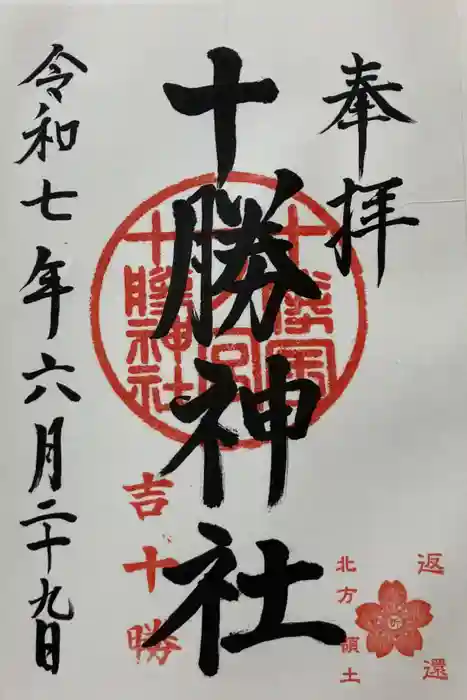 奉拝
十勝神社
令和七年六月二十九日
十勝神社
吉十勝
北方領土
返還